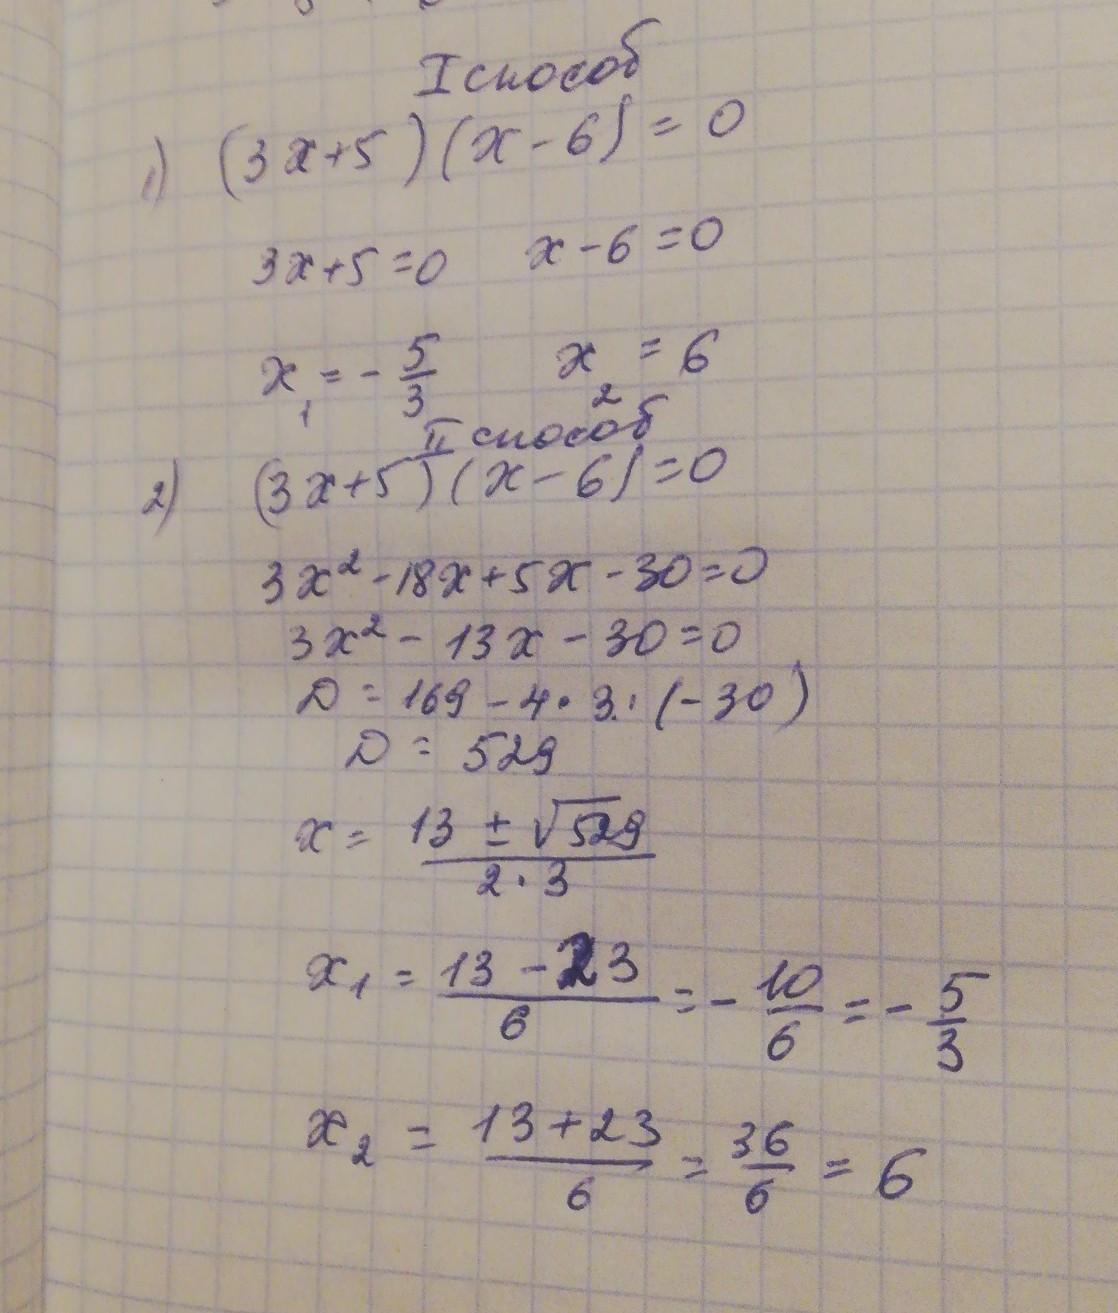 I способ
1) (3x+5)(x-6)=0
3x+5=0 x-6=0
x₁=-5/3 x₂=6
II способ
2) (3x+5)(x-6)=0
3x²-18x+5x-30=0
3x²-13x-30=0
D=169-4·3·(-30)
D=529
x=(13±√529)/(2·3)
x₁=(13-23)/6=-10/6=-5/3
x₂=(13+23)/6=36/6=6